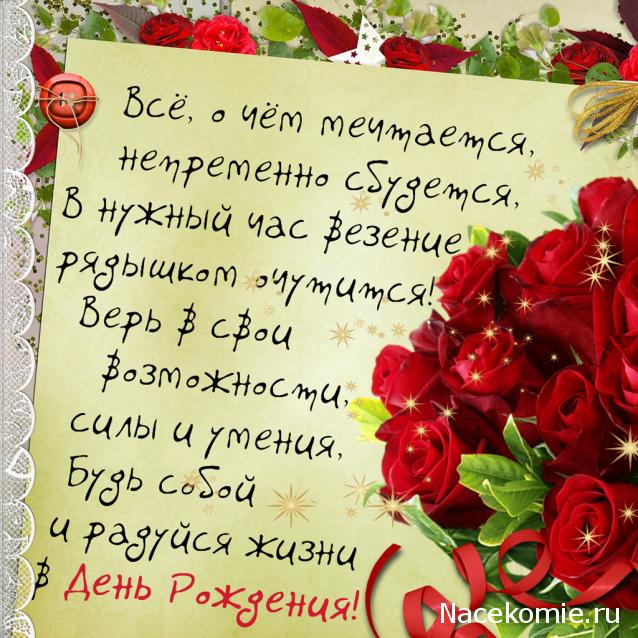 Всё, о чём мечтается,
непременно сбудется,
В нужный час везение
рядышком очутится!
Верь в свои
возможности,
силы и умения,
Будь собой
и радуйся жизни
в День Рождения!
Nacekomie.ru